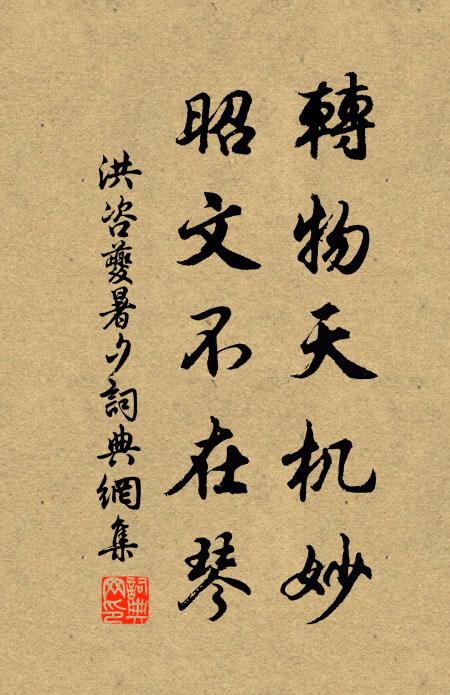 轉物天机妙
昭文不在琴
洪咨夔暑夕詞典網集
詞典网印